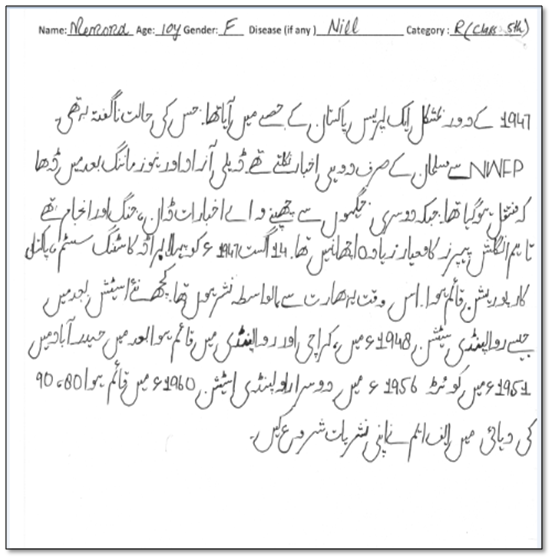 Name: Memona Age: 10y Gender: F Disease (if any) Nill Category: R (Class 5th)
1947 کے دور بمشکل ایک پریس پاکستان کے حصے میں آیا تھا. جس کی حالت ناگفتہ بہ تھی۔
NWFP سے مسلمان کے صرف دو ہی اخبار نکلتے تھے. ڈیلی آزاد اور نیوز مارننگ بعد میں ڈھا
کہ منتقل ہو گیا تھا. جبکہ دوسری جگہوں سے چھپنے والے اخبارات ڈان، جنگ اور انجام تھے
تاہم انگلش پیپرز کا معیار زیادہ اچھا نہیں تھا. 14 اگست 1947ء کو پہلا براڈ کاسٹنگ سسٹم، پاکستان
کارپوریشن قائم ہوا. اس وقت یہ بھارت سے بالواسطہ نشر ہوں تھا. کچھ نئے اسٹیشن بعد میں
جیسے روالپنڈی سٹیشن, 1948ء میں، کراچی اور روالپنڈی میں قائم ہوا بعد میں حیدرآباد میں
1951ء میں کوئٹہ 1956ء میں دوسرا راولپنڈی اسٹیشن 1960ء میں قائم ہوا 80، 90
کی دہائی میں ایف ایم نے اپنی نشریات شروع کیں۔